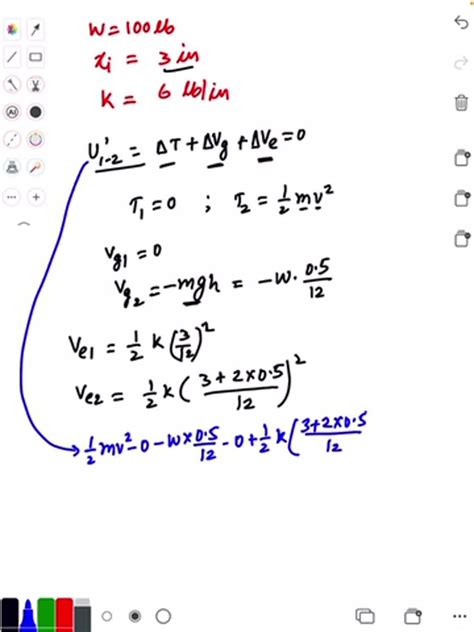 W = 100 lb
x_i = 3 in
K = 6 lb/in
U'_{1-2} = ΔT + ΔV_g + ΔV_e = 0
T_1 = 0 ; T_2 = 1/2 mv^2
V_{g1} = 0
V_{g2} = -mgh = -W · 0.5/12
V_{e1} = 1/2 K (3/12)^2
V_{e2} = 1/2 K ( (3+2×0.5)/12 )^2
1/2 mv^2 - 0 - W × 0.5/12 - 0 + 1/2 K ( (3+2×0.5)/12